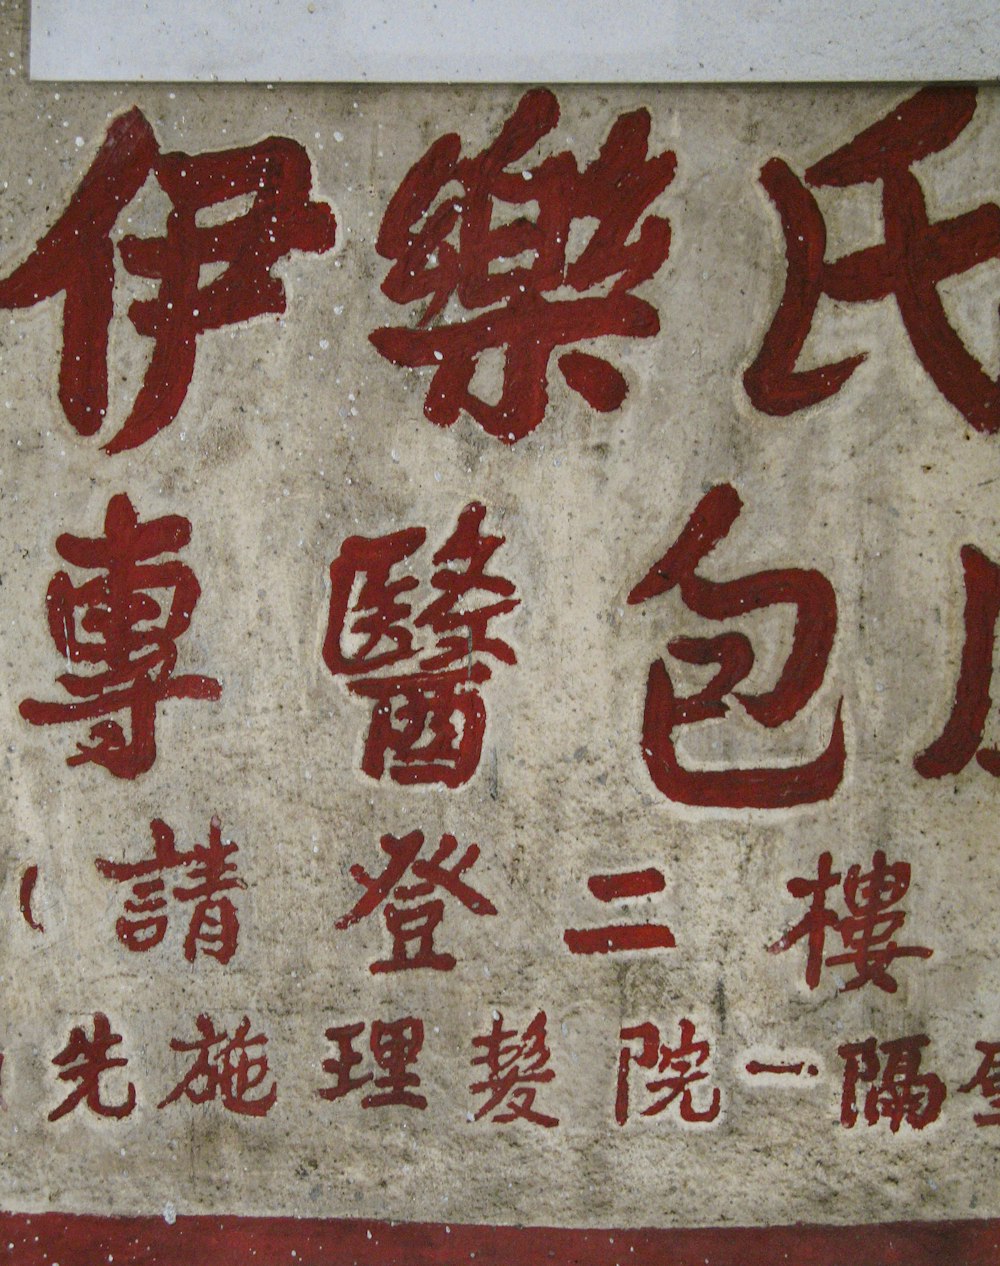 伊樂氏
專醫包
(請登二樓
先施理髮院一隔